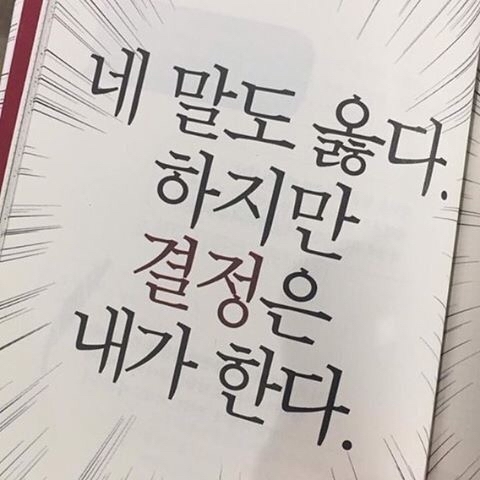 네 말도 옳다.
하지만
결정은
내가 한다.